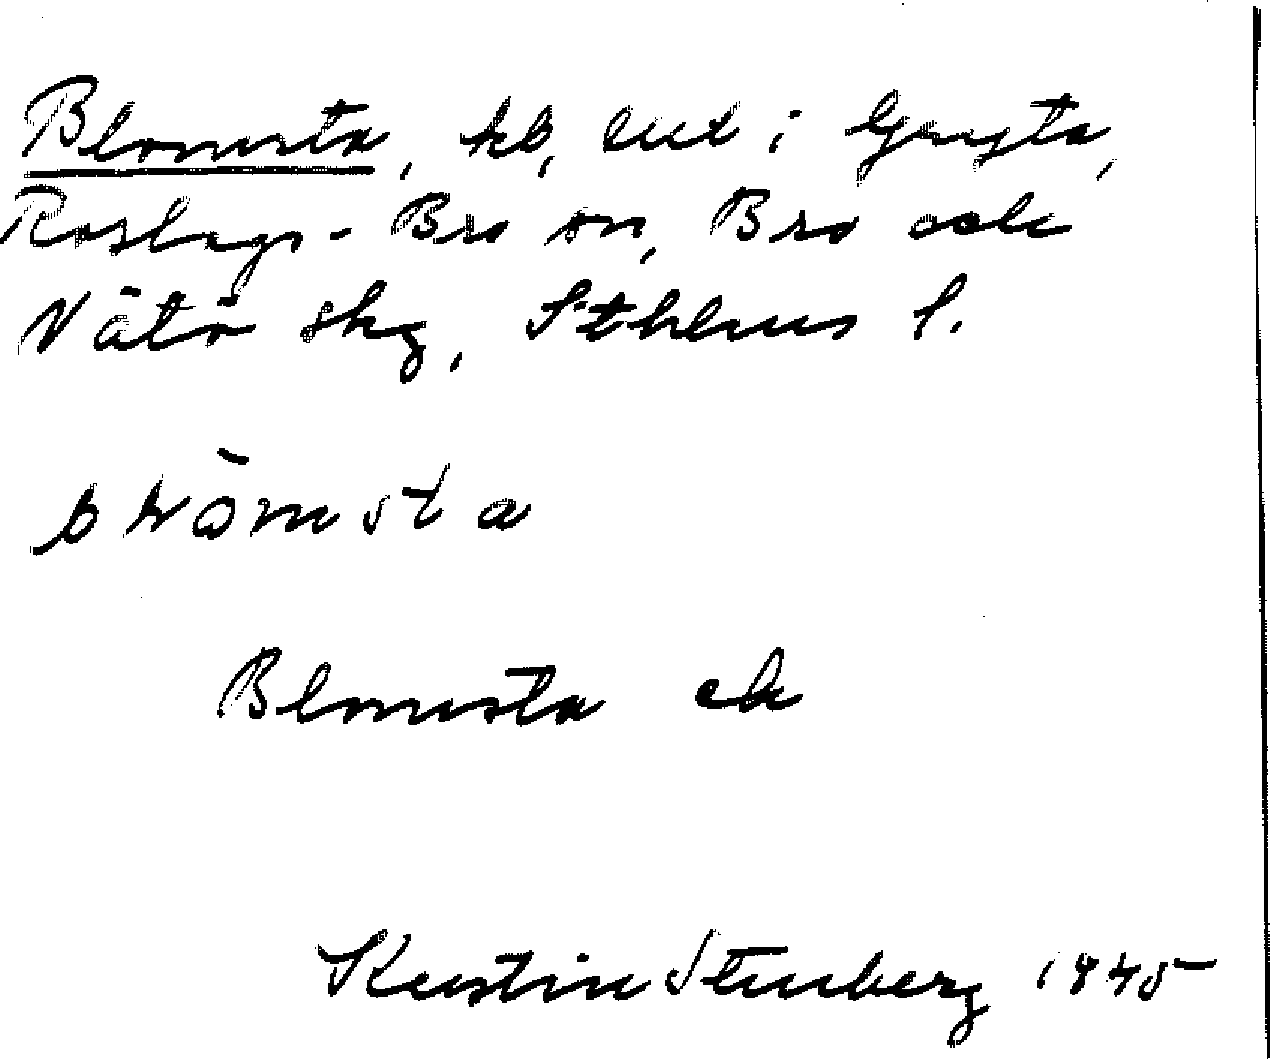 Blomsta, hb, enl i Gryta,
Roslags-Bro sn, Bro och
Vätö skg, Sthlms l.
Blomsta ek
Kerstin Stenberg 1945